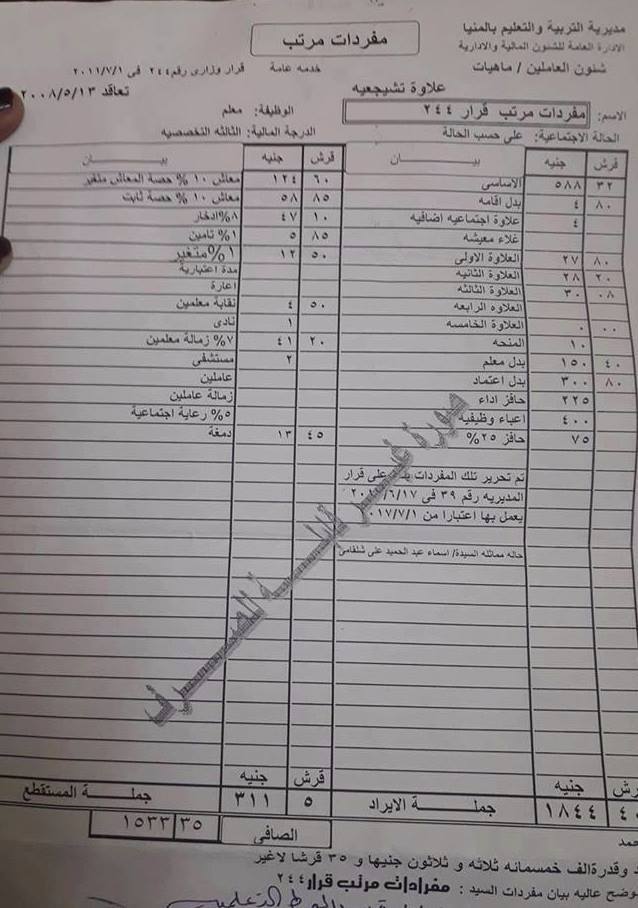 مديرية التربية والتعليم بالمنيا
الادارة العامة للشئون المالية والادارية
شئون العاملين / ماهيات
مفردات مرتب
خدمه عامة
قرار وزارى رقم ٢٤٤ فى ٢٠١١/٧/١
علاوة تشيجعيه
تعاقد ٢٠٠٨/٥/١٣
الاسم: مفردات مرتب قرار ٢٤٤
الوظيفة: معلم
الحالة الاجتماعية: على حسب الحالة
الدرجة المالية: الثالثه التخصصيه
قرش جنيه بيــــان قرش جنيه بيــــان
٣٢ ٥٨٨ الاساسى ٦٠ ١٢٤ معاش ١٠ % حصة المعاش متغير
٨٠ ٤ بدل اقامه ٨٥ ٥٨ معاش ١٠ % حصة ثابت
٤ علاوة اجتماعيه اضافيه ١٠ ٤٧ ٨%ادخار
غلاء معيشه ٨٥ ٥ ١% تامين
٨٠ ٢٧ العلاوة الاولى ٥٠ ١٢ ١%متغير
٢٠ ٢٨ العلاوة الثانيه مدة اعتبارية
٠٨ ٣٠ العلاوة الثالثه اعارة
العلاوه الرابعه ٥٠ ٤ نقابة معلمين
٠٠ ٠ العلاوة الخامسه ١ نادى
١٠ المنحه ٢٠ ٤١ ٧% زمالة معلمين
٤٠ ١٥٠ بدل معلم ٢ مستشفى
٨٠ ٣٠٠ بدل اعتماد عاملين
٢٢٥ حافز اداء زمالة عاملين
٤٠٠ اعباء وظيفية ٥% رعاية اجتماعية
٧٥ حافز ٢٥% ٤٥ ١٣ دمغة
تم تحرير تلك المفردات على قرار
المديريه رقم ٣٩ فى
يعمل بها اعتبارا من
حاله مماثله السيدة/ اسماء عبد الحميد على شلقامى
قرش جنيه
جنيه
١٨٤٤ جملـــة الايراد ٥ ٣١١ جملـــة المستقطع
الصافى ٣٥ ١٥٣٣
وقدرة الف خمسمائه ثلاثه و ثلاثون جنيها و ٣٥ قرشا لاغير
عاليه بيان مفردات السيد : مفرادات مرتب قرار ٢٤٤